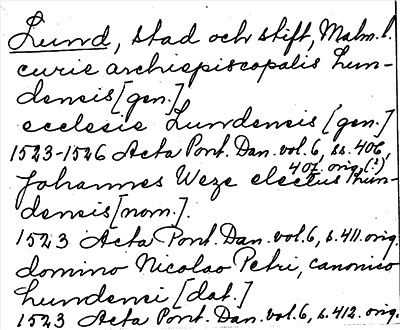 Lund, stad och stift, Malm.l.
curie archiepiscopalis Lun-
densis [gen.]
ecclesie Lundensis [gen.]
1523-1526 Acta Pont. Dan. vol. 6, ss. 406,
407. orig. (?)
Johannes Weze electus Lun-
densis [nom.].
1523 Acta Pont. Dan. vol. 6, s. 411. orig.
domino Nicolao Petri, canonico
Lundensi [dat.]
1523 Acta Pont. Dan. vol. 6, s. 412. orig.